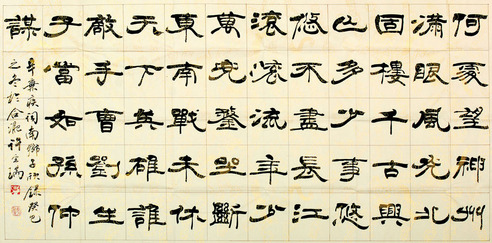 何處望神州
滿眼風光北
固樓千古興
亡多少事悠
悠不盡長江
滾滾流年少
萬兜鍪坐斷
東南戰未休
天下英雄誰
敵手曹劉生
子當如孫仲
謀
辛棄疾詞南鄉子欣錄癸巳
之冬於合淝許